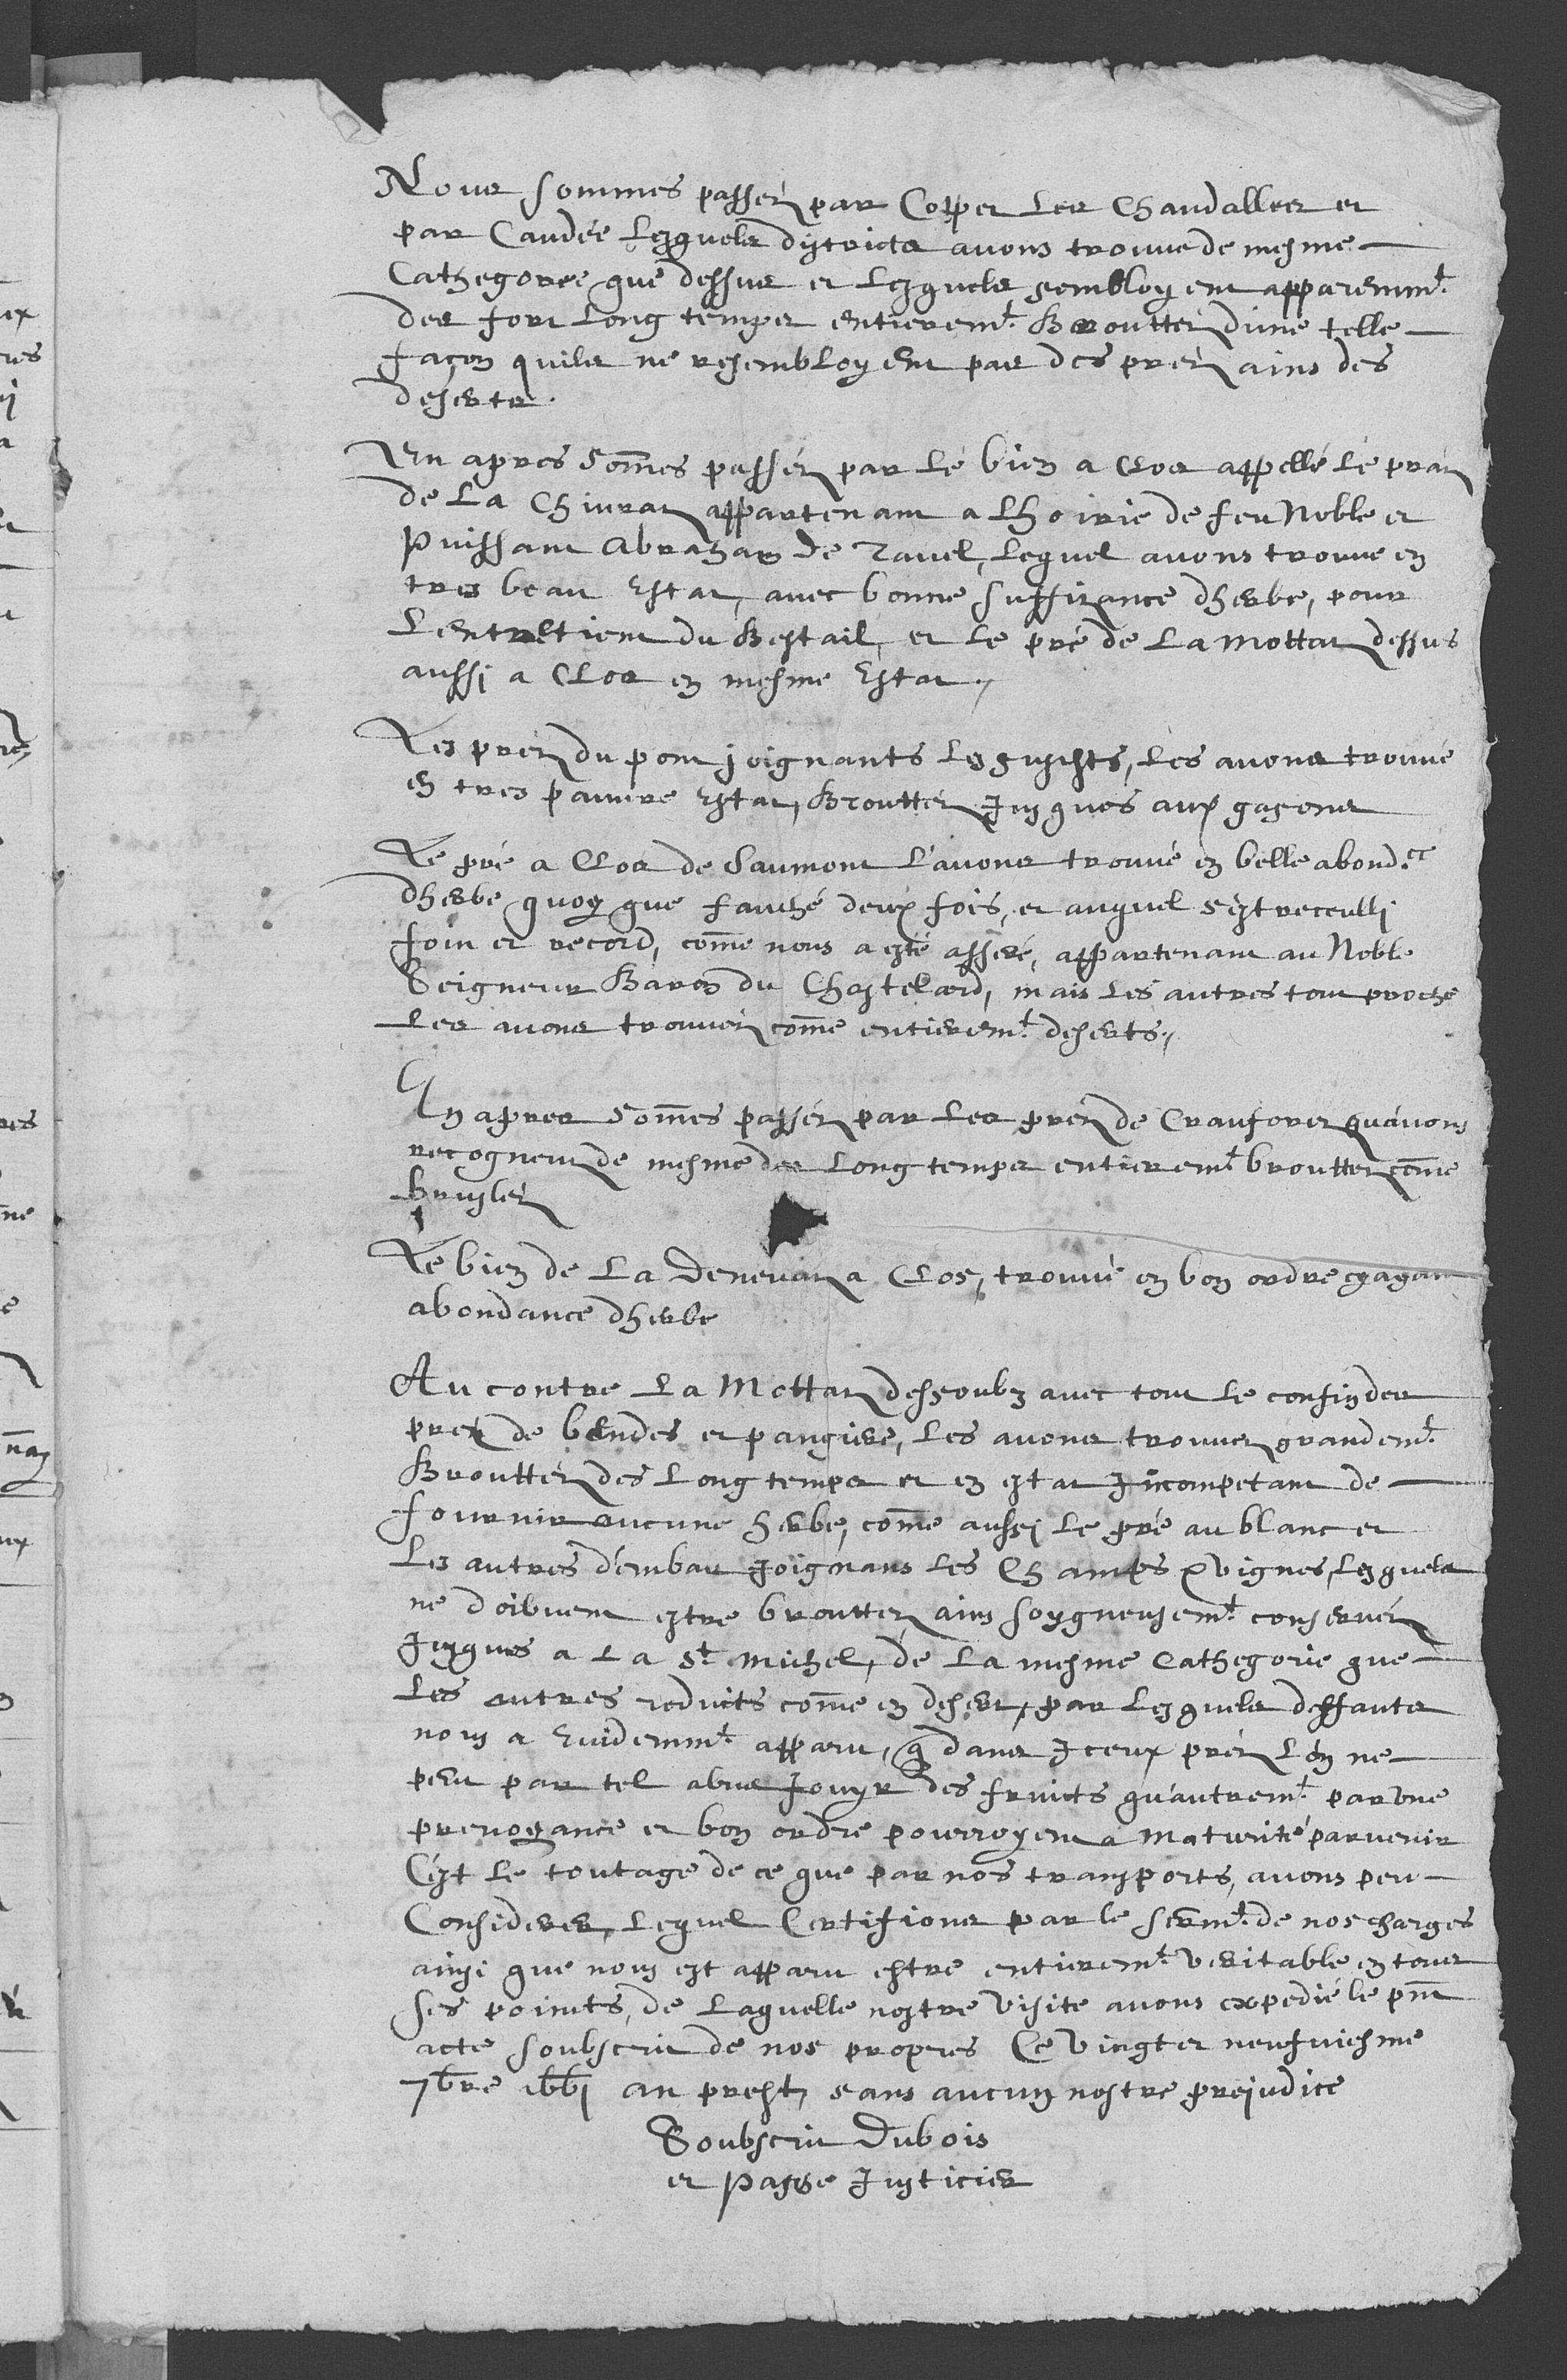 Nous sommes passéz par Copet les Chandalles et
par Caudée lesquels districts avons trouvé de mesme
Cathegorie que dessus et lesquels sembloyent apparemmt.
des fort long temps entieremt. Brouttéz dune telle
façon quils ne resembloyent pas des préz ains des
deserts.
En apres som̄es passéz par le bien a Clos appellé le praz
de La Chivraz appartenant a Lhoirie de feu Noble et
Puissant Abraham de Tavel, lequel avons trouvé en
tres beau Estat, avec bonne suffizance dherbe, pour
Lentretient du Bestail, et le pré de La Mottaz dessus
aussi a Clos en mesme Estat.
Les préz du pont joignants les susdits, les avons trouvé
en tres pauvre Estat, Brouttéz Jusques aux gasons
Le pré a Clos de Saumont L'avons trouvé en belle abond.ce
dherbe quoy que fauché deux fois, et auquel sest receulli
foin et record, com̄e nous a esté asseré, appartenant au Noble
Seigneur Baron du Chastelard, mais les autres tout proche
Les avons trouvéz com̄e entieremt. deserts.
En apres som̄es passéz par les préz de Crauforez quavons
recogneuz de mesme des long temps entieremt brouttez com̄e
bruslez
Le bien de La Denevaz a Clos, trouvé en bon ordre ayant
abondance dherbe
Au contre La Mottaz dessoubz avec tout le confin des
prez de bendes et paugiere, les avons trouvez grandemt.
Brouttéz des Long temps et en estat Jincompetant de
fournir aucune herbe, com̄e aussi le pré au blanc et
Les autres dembas Joignans les Champs & vignes, lesquels
ne doibvent estre brouttez ains soygneusemt. conservéz
Jusques a La St. Michel, de La mesme Cathegorie que
Les autres reduits com̄e en desert, par lesquels deffauts
nous a Evidemmt. apparu, q̄ dans Jceux préz Lon ne
peut par tel abus Jouyr des fruicts quautremt. par une
prevoyance et bon ordre pourroyent a Maturité parvenir
Cest le toutage de ce que par nos transports, avons peu
Considerer, Lequel Certifions par le sermt. de nos charges
ainsi que nous est apparu estre entieremt. veritable en tous
ses points, de Laquelle nostre Visite avons expedié le pn̄t
acte soubscrit de nos propres Ce vingt et neufviesme
7bre 1661 an prest, sans aucun nostre prejudice
Soubscrit Dubois
et Passe Justicier